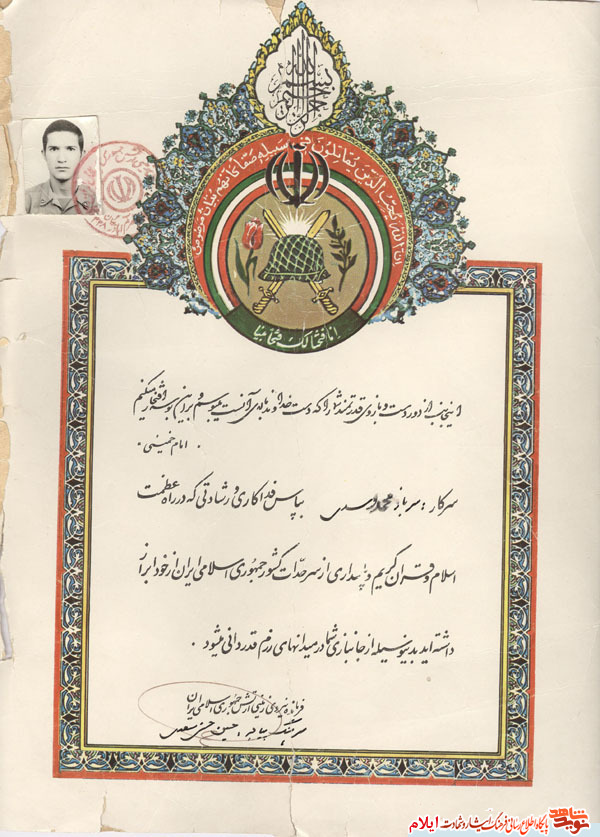 بسم الله الرحمن الرحیم
ان الله یحب الذین یقاتلون فی سبیله صفا کانهم بنیان مرصوص
انا فتحنا لک فتحا مبینا
اینجانب از دور دست و بازوی قدرتمند شما را که دست خداوند بالای آنست میبوسم و بر این بوسه افتخار میکنم
امام خمینی
سرکار : سرباز محمد اسدی بپاس فداکاری و رشادتی که در راه عظمت
اسلام و قرآن کریم و پاسداری از سرحدات کشور جمهوری اسلامی ایران از خود ابراز
داشته اید بدینوسیله از جانبازی شما در میدانهای رزم قدردانی میشود .
فرمانده نیروی زمینی ارتش جمهوری اسلامی ایران
سرهنگ پیاده حسین حسنی سعدی
نوید شاهد پایگاه اطلاع رسانی فرهنگ ایثار و شهادت ایلام